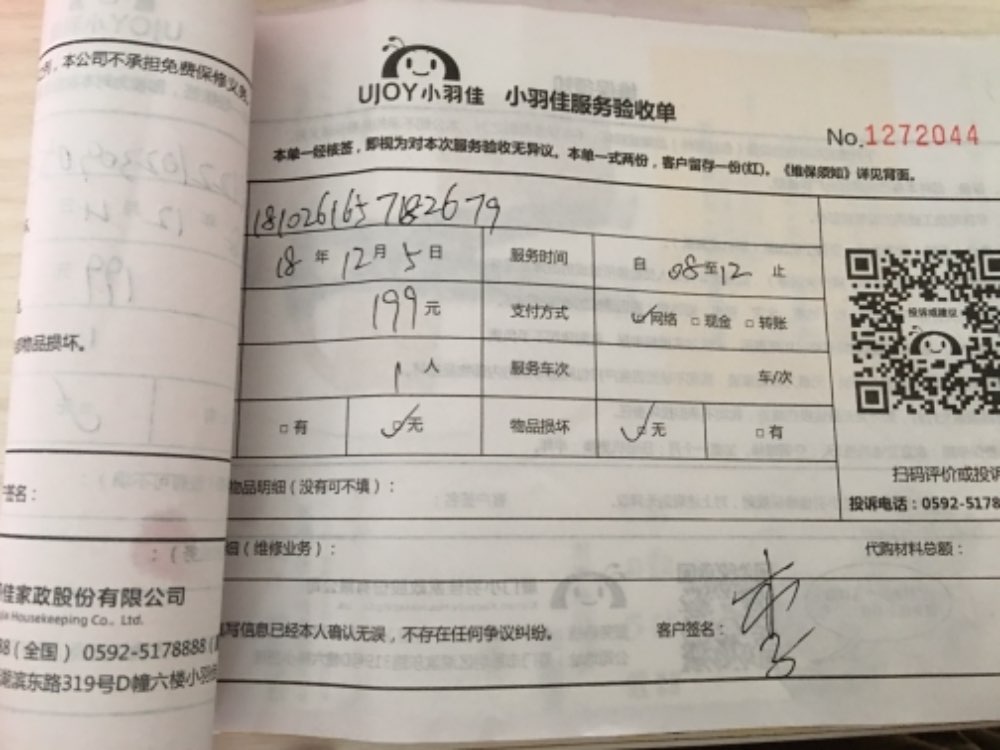 本公司不承担免费保修义务。
UJOY小羽佳 小羽佳服务验收单
No.1272044
本单一经核签，即视为对本次服务验收无异议。本单一式两份，客户留存一份(红)。《维保须知》详见背面。
1810261657182679
18年12月5日 服务时间 自 08至12 止
199元 支付方式 网络 现金 转账
1人 服务车次 车/次
有 无 物品损坏 无 有
投诉或建议
物品损坏。
扫码评价或投诉
签名：
物品明细（没有可不填）：
投诉电话：0592-5178
细（维修业务）： 代购材料总额：
佳家政股份有限公司
Housekeeping Co., Ltd.
写信息已经本人确认无误，不存在任何争议纠纷。 客户签名：
88（全国） 0592-5178888
湖滨东路319号D幢六楼小羽佳